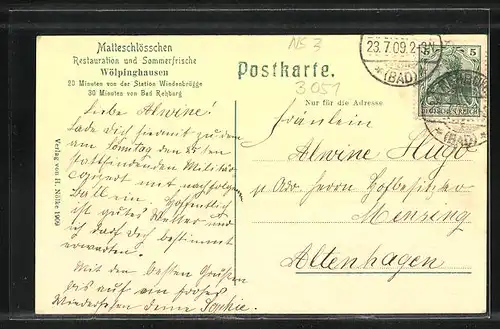 Matteschlösschen
Restauration und Sommerfrische
Wölpinghausen
20 Minuten von der Station Wiedenbrügge
30 Minuten von Bad Rehburg
Postkarte.
Nur für die Adresse
NS 3
3051
23.7.09.2-3N.
(BAD)
5 5
DEUTSCHES REICH
(BAD)
Liebe Alwine!
Lade Dich hiermit zu dem
am Sonntag den 25ten
stattfindenden Militär
Conzert mit nachfolg.
Ball ein. Hoffentlich
ist gutes Wetter und
ich darf dich bestimmt
erwarten.
Mit den besten Grüßen
bis auf ein frohes
Wiedersehen deine Sophie.
Fräulein
Alwine Hugo
p. Adr. Herrn Hofbesitzer
Mensing
Altenhagen
Verlag von H. Nölke 1909